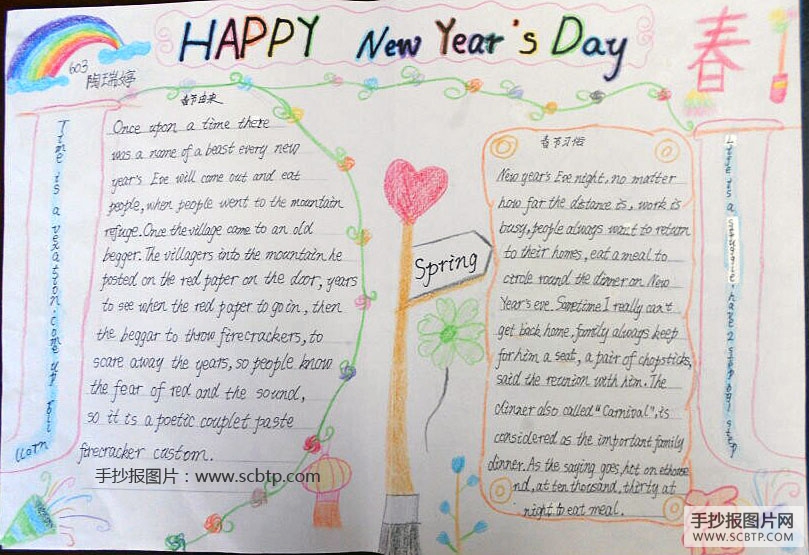 HAPPY New Year's Day
603
陶瑞婷
春
春节由来
Once upon a time there
was a name of a beast every new
year's Eve will come out and eat
people, when people went to the mountain
refuge. Once the village came to an old
begger. The villagers into the mountain he
posted on the red paper on the door, years
to see when the red paper to go in, then
the beggar to throw firecrackers, to
scare away the years, so people know
the fear of red and the sound,
so it is a poetic couplet paste
firecracker custom.
Time is a vexation. come up
Spring
春节习俗
New year's Eve night, no matter
how far the distance is, work is
busy, people always want to return
to their homes, eat a meal to
circle round the dinner on New
Year's eve. Sometime I really can't
get back home. family always keep
for him a seat, a pair of chopsticks,
said the reunion with him. The
dinner also called "Carnival", is
considered as the important family
dinner. As the saying goes, hit on ethousa
nd, at ten thousand, thirty at
night to eat meal.
is a struggle. have step
手抄报图片：www.scbtp.com
手抄报图片网
WWW.SCBTP.COM